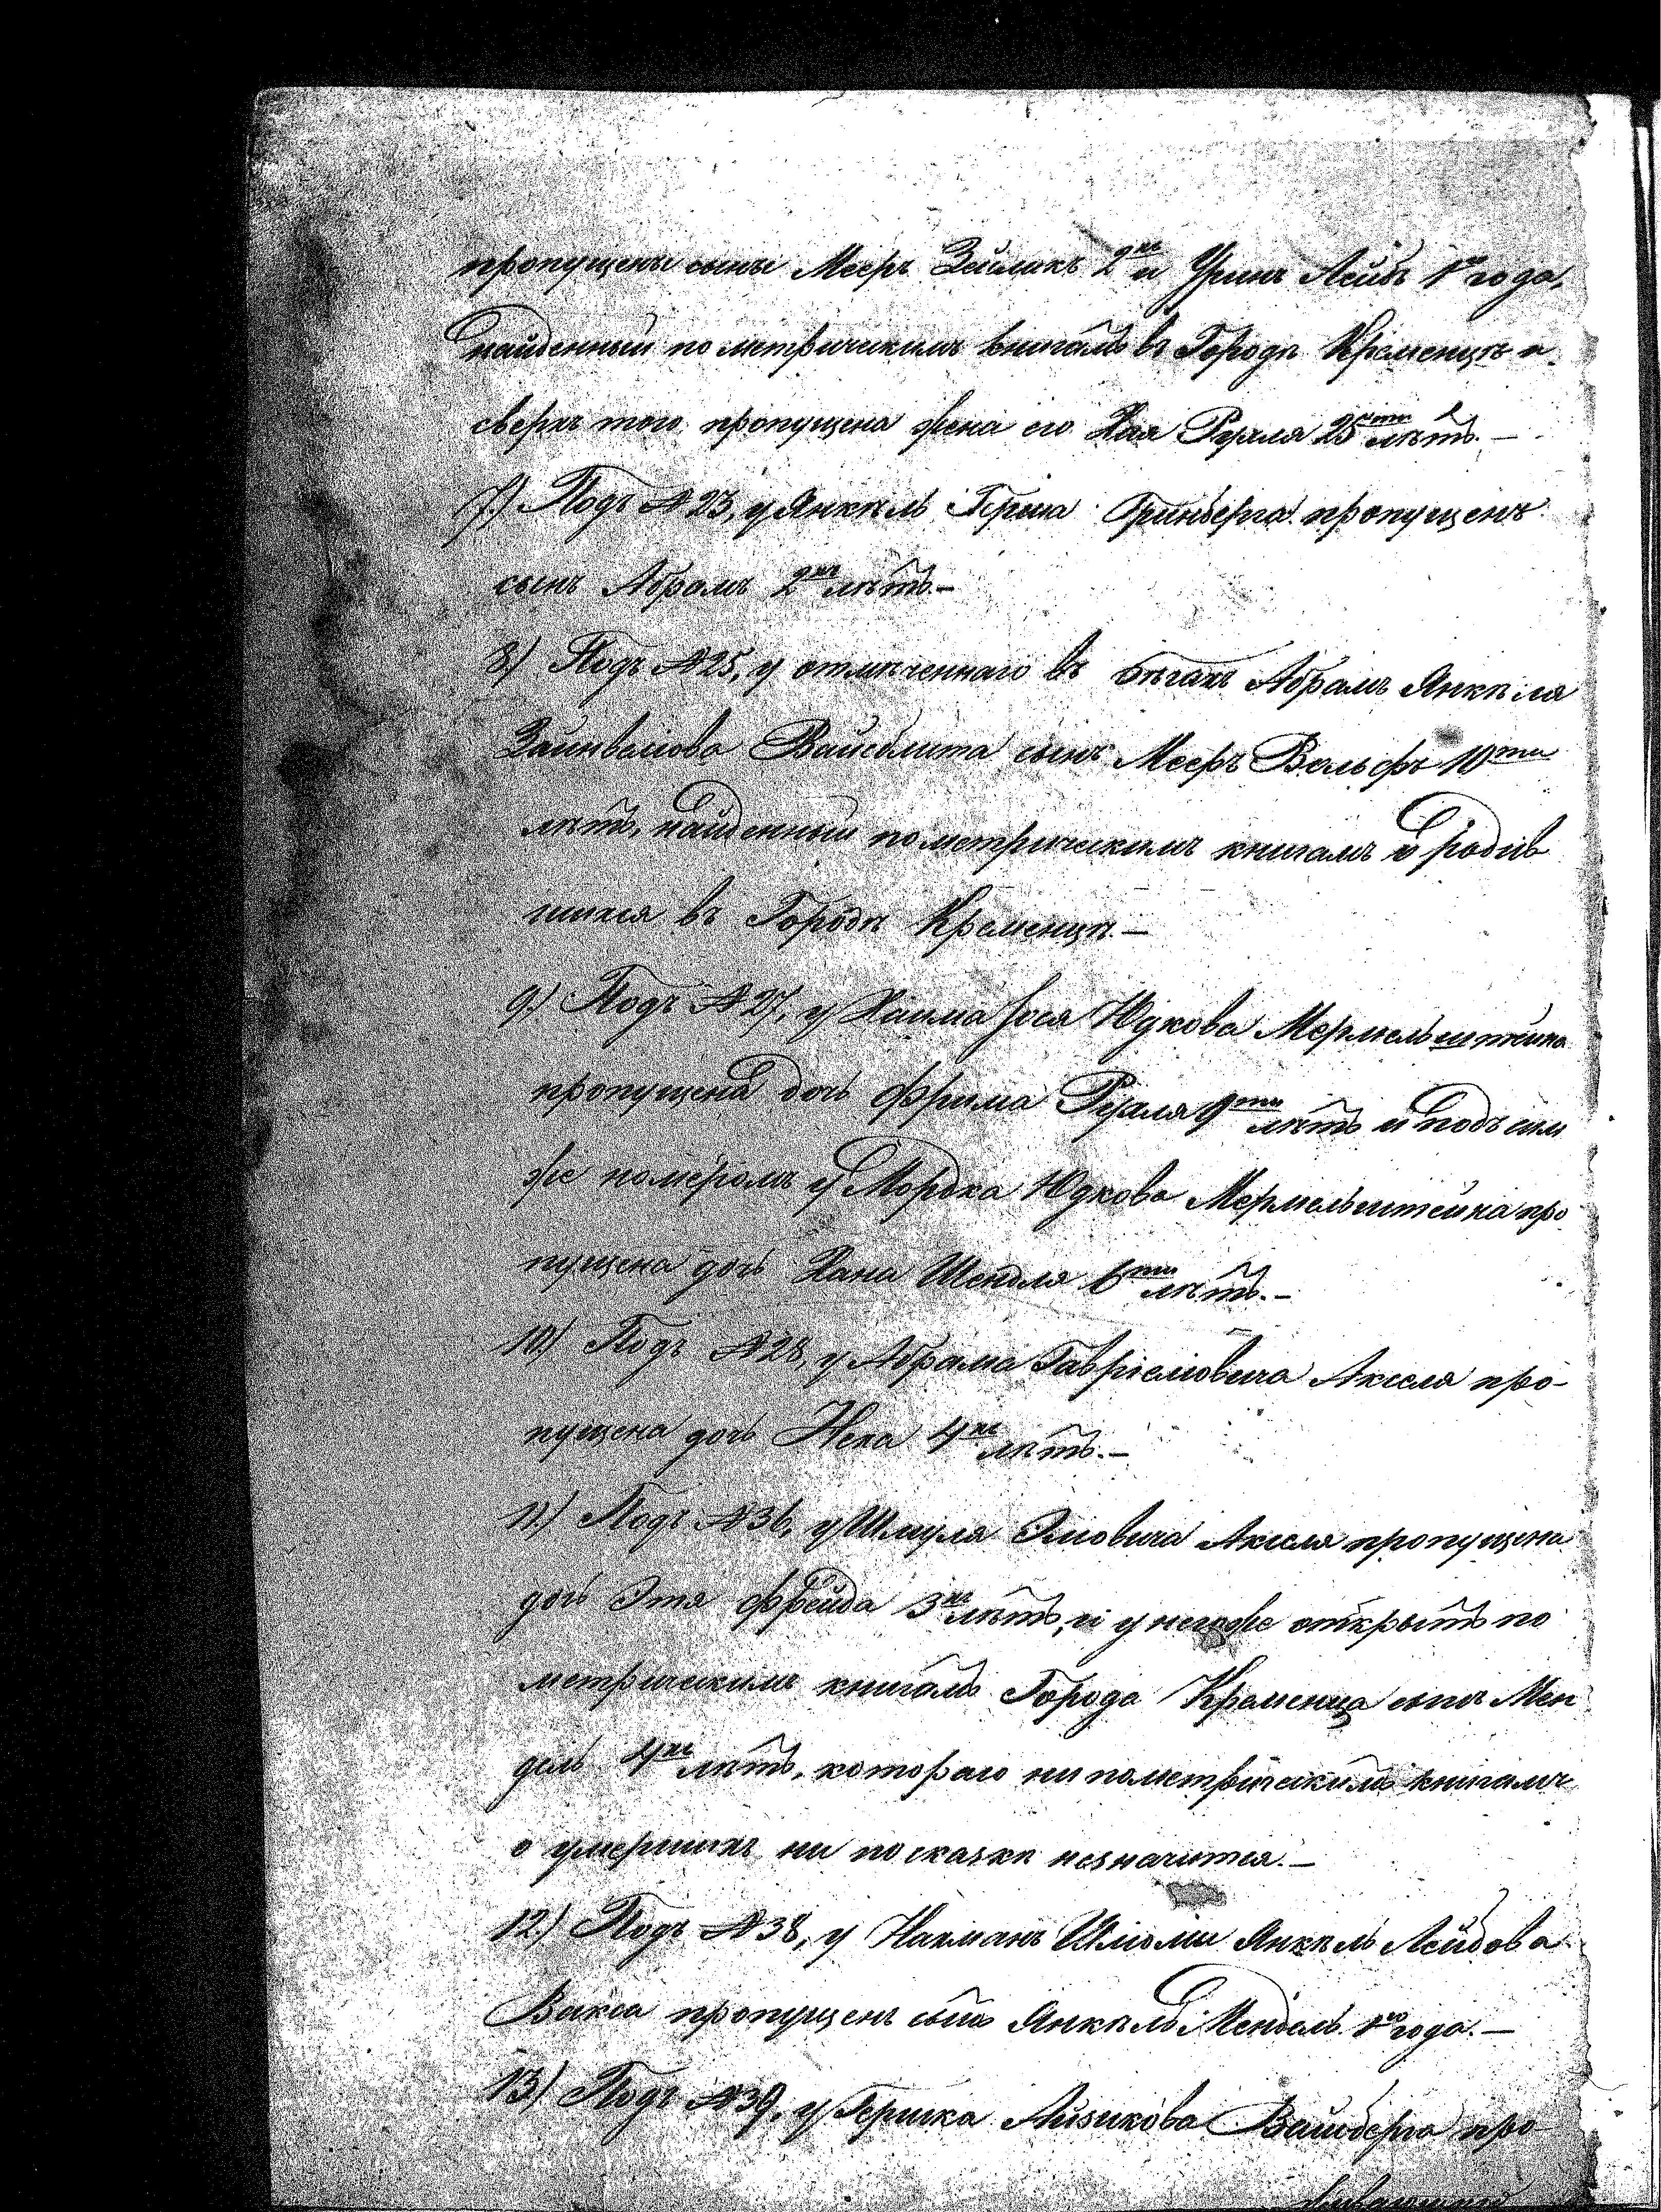 пропущены сыны Мееръ Зейликъ 2хъ и Уринъ Лейбъ 1го года,
найденный по метрическимъ книгамъ въ Городѣ Кременцѣ и
сверхъ того пропущена жена его Хая Рухля 25ти лѣтъ.—
7) Подъ №23, у Янкель Герша Гринберга пропущенъ
сынъ Абрамъ 2хъ лѣтъ.—
8) Подъ №25, у отмѣченнаго въ бѣгахъ Абрамъ Янкеля
Вайсблита сынъ Мееръ Вольфъ 10ти
лѣтъ, найденный по метрическимъ книгамъ о родив
шихся въ Городѣ Кременцѣ.—
9.) Подъ №27, у Хаима Іося Юдкова Мермельштейна
пропущена дочь Фрима Рухля 9ти лѣтъ и подъ симъ
же номеромъ у Мордка Юдкова Мермельштейна про
пущена дочь Хана Шендля 6ти лѣтъ.—
10) Подъ №28, у Абрама Гавріеловича Акселя про-
пущена дочь 4хъ лѣтъ.—
11.) Подъ №36, у Шмуля Элювича Акселя пропущена
дочь Этя Фрейда 3хъ лѣтъ, и у негоже открытъ по
метрическимъ книгамъ Города Кременца сынъ Мен
дель 4хъ лѣтъ, котораго ни по метрическимъ книгамъ
о умершихъ ни по сказкѣ незначится.—
12.) Подъ №38, у Нахманъ Шліоми Янкель Лейбова
Вакса пропущенъ сынъ Янкель Мендель 1го года.—
13) Подъ №39, у Гершка Айзикова Вайсберга про